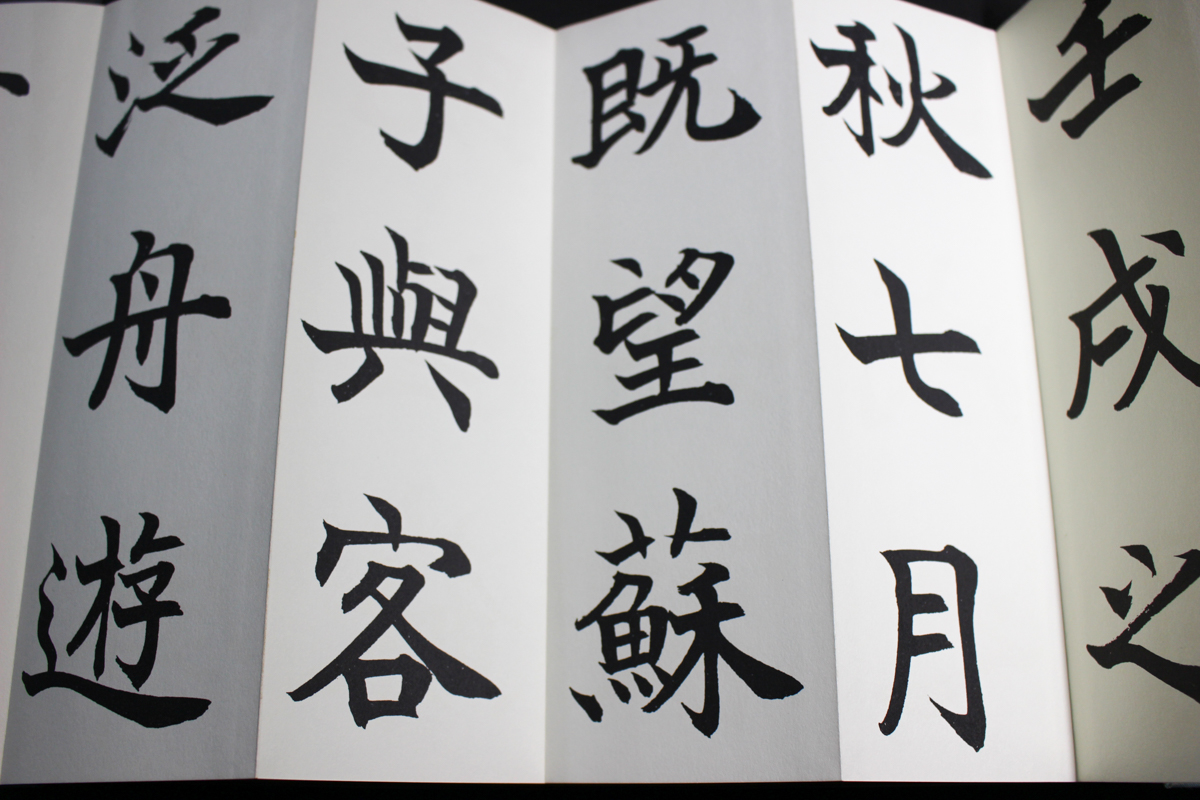 壬戌之
秋七月
既望蘇
子與客
泛舟遊